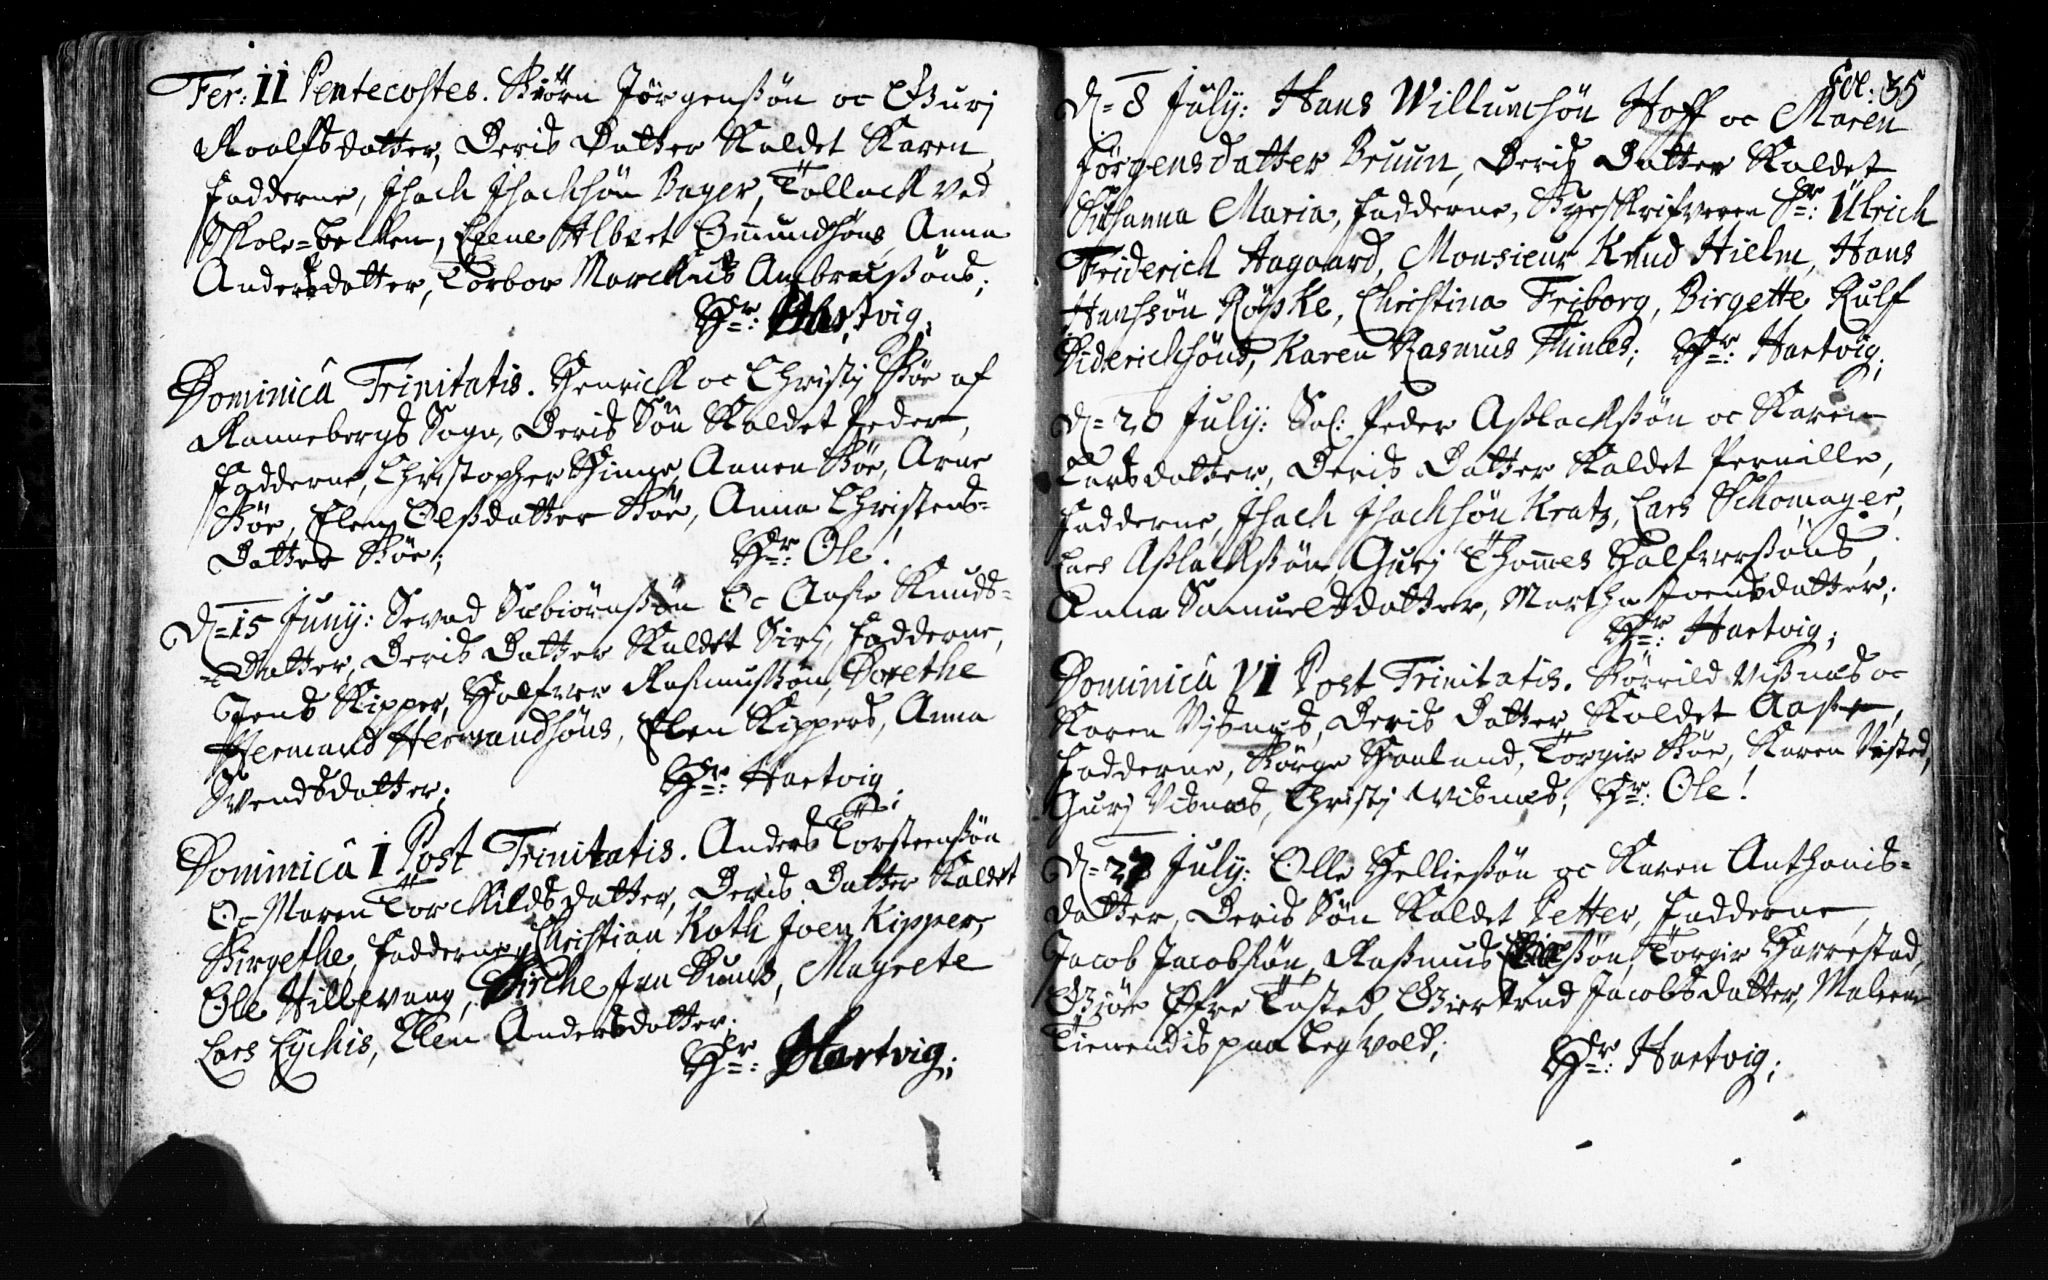 Fer: II Pentecostes. Biörn Jörgensßön oc Guri
Roalfsdatter, Deris Datter Kaldet Karen,
Fadderne, Isach Isachsön Bager, Tollack ved
Skole-becken, Elene Albert Omundsöns, Anna
Andersdatter, Torbor Marckus Ambrosißöns;
Hr: Hartvig;
Dominicâ Trinitatis. Henrick oc Christj Böe af
Rannebergs Sogn, Deris Sön Kaldet Peder,
Fadderne, Christopher Hinne, Annen Böe, Arne
Böe, Elen Olsdatter Böe, Anna Christens-
Datter Böe;
Hr: Ole!
D. 15 Junij: Sevad Sæbiörnsßön Oc Aaße Knuds-
Datter, Deris Datter Kaldet Siri, Fadderne,
Jens Kipper, Halfver Rasmusßön, Dorethe
Hermand Hermandsöns, Elen Kippers, Anna
Svendsdatter;
Hr: Hartvig;
Dominicâ I Post Trinitatis. Anders Torsteensßön
Oc Maren Torchildsdatter, Deris Datter Kaldet
Birgethe, Fadderne, Christian Roth, Joen Kipper,
Ole Hillevaag, Birche Jan Buns, Magrete
Lars Lychis, Elen Andersdatter;
Hr: Hartvig;
Fol: 35
D. 8 July: Hans Willumsön Hoff oc Maren
Jörgensdatter Bruun, Deris Datter Kaldet
Susanna Maria, Fadderne, Byeskrifveren Sr: Ulrich
Friderich Aagaard, Monsieur Knud Hielm, Hans
Hanssön Röske, Christina Friborg, Birgette Rulf
Diderichsöns, Karen Rasmus Times; Hr: Hartvig;
D. 20 July: Sal: Peder Aßlacksßön oc Karen
Larsdatter, Deris Datter Kaldet Pernille,
Fadderne, Isach Isachsön Kratz, Lars Schomager,
Lars Aßlacksßön, Gurj Thommes Halfversßöns,
Anna Samuelsdatter, Martha Joensdatter;
Hr: Hartvig;
Dominicâ VI Post Trinitatis. Börrild Vißnæs oc
Karen Visnæs, Deris Datter Kaldet Aaße,
Fadderne, Börge Haaland, Torgir Böe, Karen Visted,
Gurj Visnæs, Christj Visnæs; Hr: Ole!
D. 27 July: Olle Helliesßön oc Karen Anthonis-
datter, Deris Sön Kaldet Petter, Fadderne,
Jacob Jacobsön, Rasmus, Torgir Harrestad,
Giöe Öfre Tasted, Giertrud Jacobsdatter, Maleene
Tienendis paa Legvold;
Hr: Hartvig;